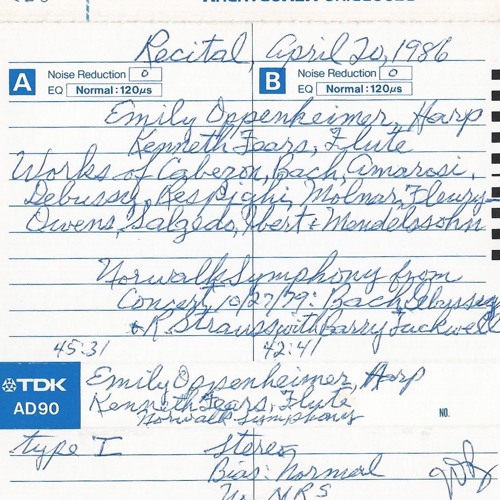 Recital, April 20, 1986
A Noise Reduction 0 B Noise Reduction 0
EQ Normal:120µs EQ Normal:120µs
Emily Oppenheimer, Harp
Kenneth Fears, Flute
Works of Cabezon, Bach, Amorosi,
Debussy, Respighi, Molnar, Fleury
Owens, Salzedo, Ibert & Mendelssohn
Norwalk Symphony from
Concert, 10/27/79: Bach, Debussy
& R. Strauss with Barry Tuckwell
45:31 42:41
TDK Emily Oppenheimer, Harp
AD90 Kenneth Fears, Flute
Norwalk Symphony
NO.
type I Stereo
Bias: Normal
No NRS